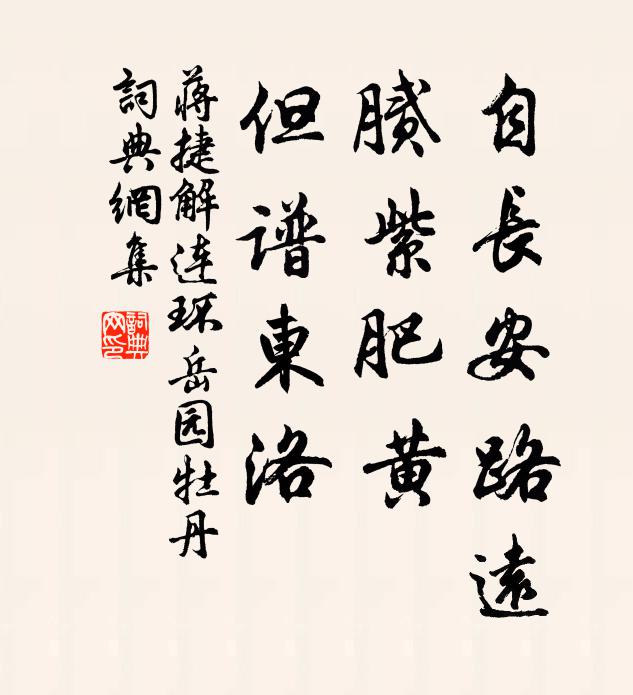 自長安路遠
膩紫肥黃
但譜東洛
蔣捷解連环岳园牡丹
詞典網集
詞典网印